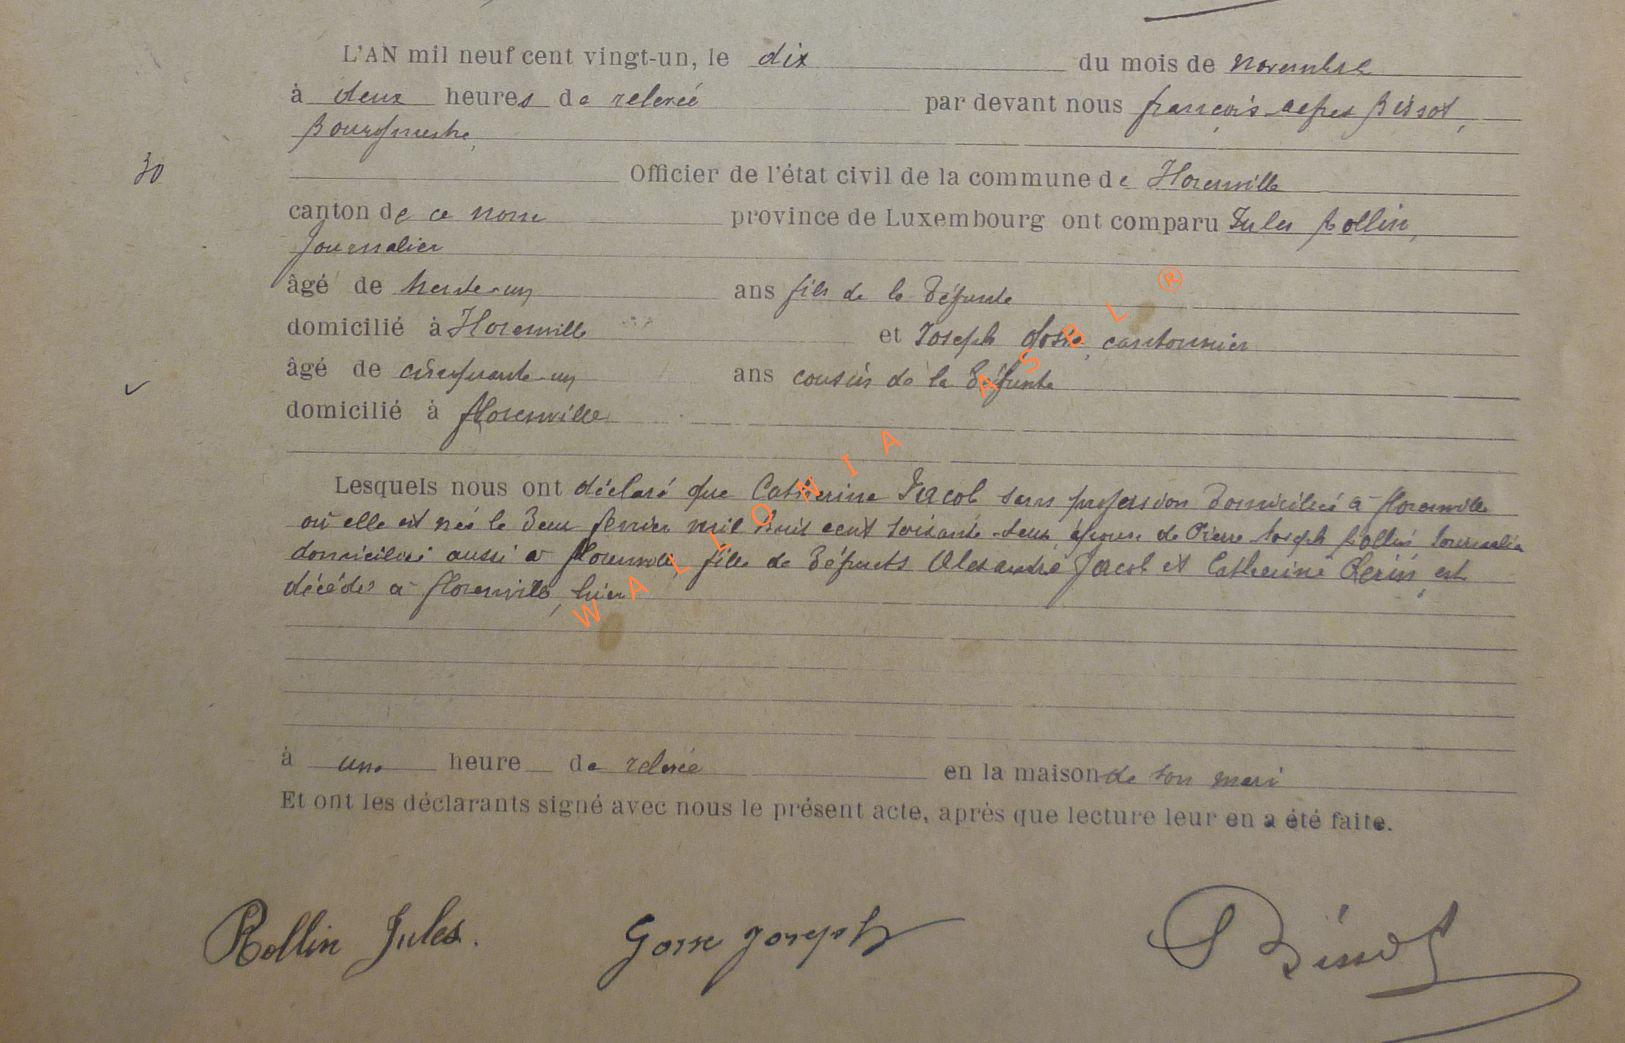 L'AN mil neuf cent vingt-un, le dix du mois de novembre
à deux heures de relevée par devant nous françois Bissot,
Bourgmestre,
30
Officier de l'état civil de la commune de Florenville
canton de ce nom province de Luxembourg ont comparu Jules Rollin,
Journalier
âgé de trente-un ans fils de la Défunte
domicilié à Florenville et Joseph Gosse, cantonnier
âgé de cinquante-un ans cousin de la Défunte
domicilié à florenville
Lesquels nous ont déclaré que Catherine Jacob, sans profession Domiciliée à florenville
où elle est née le Deux février mil huit cent soixante-deux, épouse de Pierre Joseph Rollin Journalier
domicilié aussi à florenville, fille de Défunts Alexandre Jacob et Catherine est
décédée à florenville, hier
à une heure de relevée en la maison de son mari
Et ont les déclarants signé avec nous le présent acte, après que lecture leur en a été faite.
Rollin Jules. Gosse Joseph Bissot
WALLONIA ASBL ®